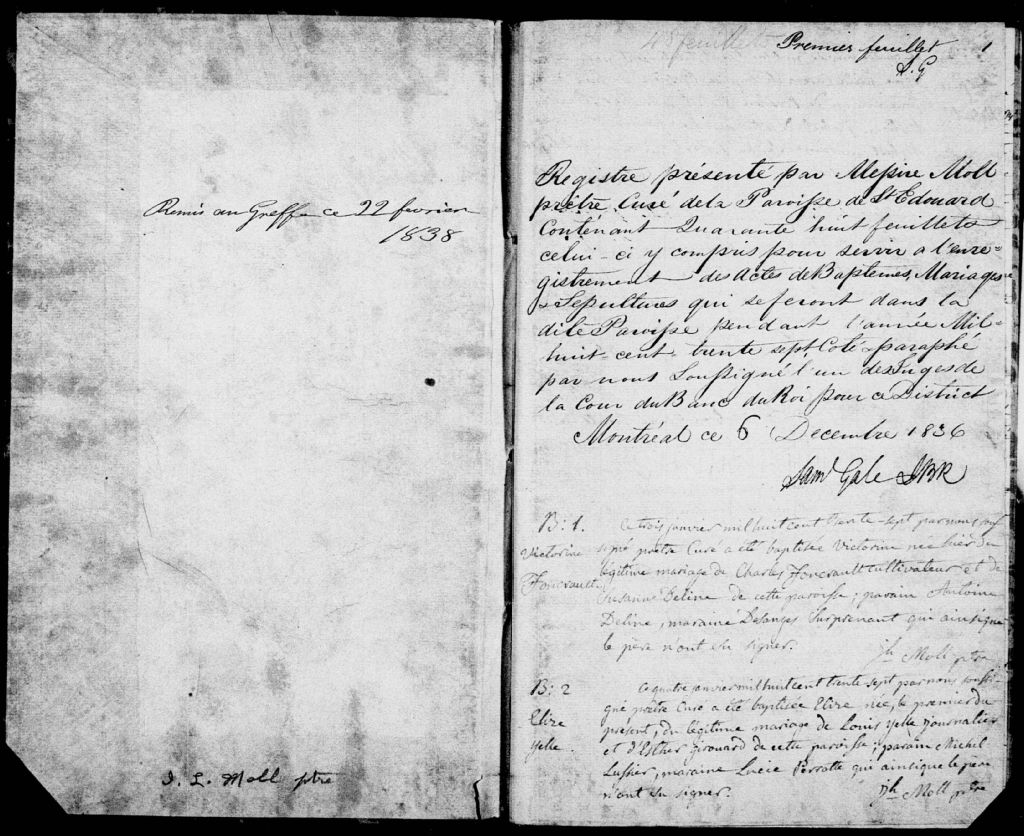 Remis au Greffe ce 22 fevrier
1838
J. L. Moll ptre
48 feuillets Premier feuillet 1
S. G
Registre présenté par Messire Moll
prêtre Curé de la Paroisse de St Edouard
Contenant Quarante huit feuillets
celui-ci y compris pour servir a l'enre-
gistrement des Actes de Baptemes, Mariages
& Sepultures qui se feront dans la
dite Paroisse pendant l'année Mil-
huit-cent-trente sept, Coté & paraphé
par nous Soussigné l'un des Juges de
la Cour du Banc du Roi pour ce District
Montréal ce 6 Decembre 1836
Saml Gale JBR
B: 1.
Victorine
Foucrault
Ce trois janvier mil huit cent trente-sept par nous sous
signé prêtre Curé a été baptisée Victorine née hier du
légitime mariage de Charles Foucrault cultivateur et de
Susanne Deline de cette paroisse; parain Antoine
Deline, maraine Desanges Surprenant qui ainsi que
le père n'ont su signer.
Jh Moll ptre
B: 2
Elize
yelle
Ce quatre janvier mil huit cent trente-sept par nous soussi-
gné prêtre Curé a été baptisée Elize née, le premier du
présent, du légitime mariage de Louis yelle journalier
et d'Esther girouard de cette paroisse; parain Michel
Lussier, maraine Lucie Perrotte qui ainsi que le père
n'ont su signer.
Jh Moll ptre